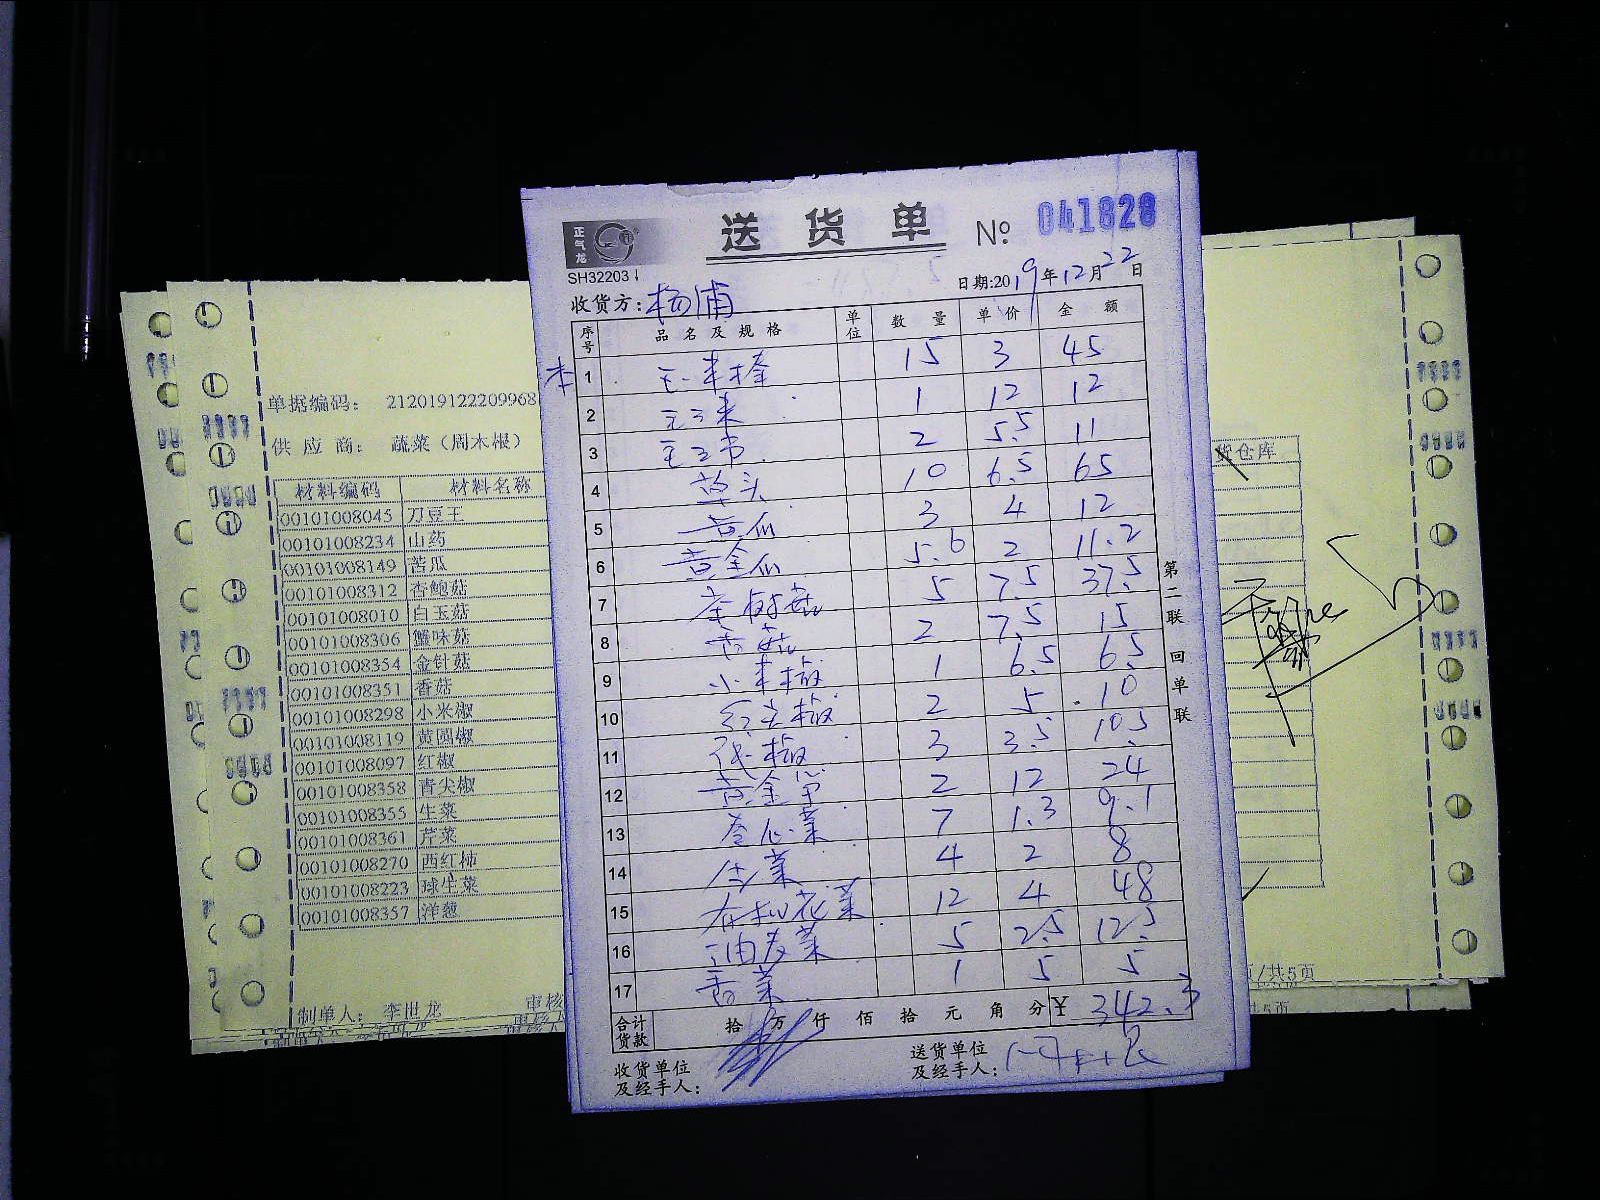 正气龙
送货单 № 041828
SH32203
日期:2019年12月22日
收货方:杨浦
序号 品名及规格 单位 数量 单价 金额
1 玉米棒 15 3 45
2 1 12 12
3 2 5.5 11
4 草头 10 6.5 65
5 黄瓜 3 4 12
6 黄金瓜 5.6 2 11.2
7 茶树菇 5 7.5 37.5
8 香菇 2 7.5 15
9 小米椒 1 6.5 6.5
10 红尖椒 2 5 10
11 3 3.5 10.5
12 2 12 24
13 卷心菜 7 1.3 9.1
14 生菜 4 2 8
15 有机花菜 12 4 48
16 油麦菜 5 2.5 12.5
17 香菜 1 5 5
合计货款 拾万仟佰拾元角分 ¥ 342.3
收货单位及经手人:
送货单位及经手人:
第二联 回单联
单据编码: 212019122209968
供应商: 蔬菜(周木根)
材料编码 材料名称
00101008045 刀豆王
00101008234 山药
00101008149 苦瓜
00101008312 杏鲍菇
00101008010 白玉菇
00101008306 蟹味菇
00101008354 金针菇
00101008351 香菇
00101008298 小米椒
00101008119 黄圆椒
00101008097 红椒
00101008358 青尖椒
00101008355 生菜
00101008361 芹菜
00101008270 西红柿
00101008223 球生菜
00101008357 洋葱
制单人: 李世龙
审核
货仓库
页/共5页